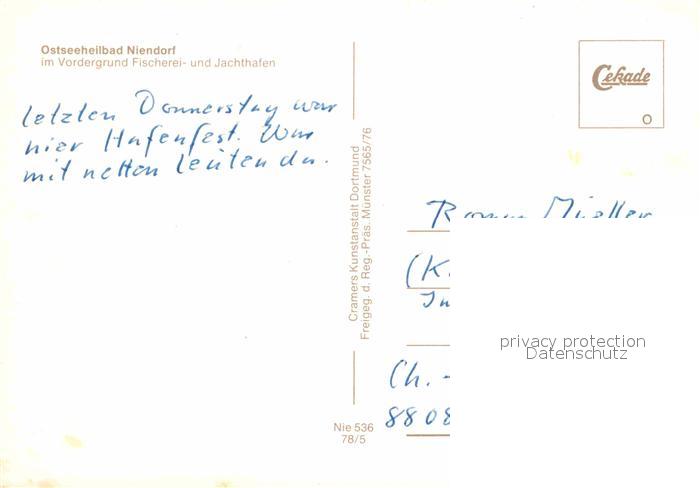 Ostseeheilbad Niendorf
im Vordergrund Fischerei- und Jachthafen
letzten Donnerstag war
hier Hafenfest. War
mit netten Leuten da.
Cramers Kunstanstalt Dortmund
Freigeg. d. Reg.-Präs. Münster 7565/76
Nie 536
78/5
Cekade
Müller
(K.
Ch. -
8808
privacy protection
Datenschutz